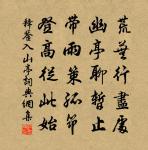 荒蕪行盡處
幽亭聊暫止
帶雨策孤筇
登高從此始
釋鑒入山亭詞典網集